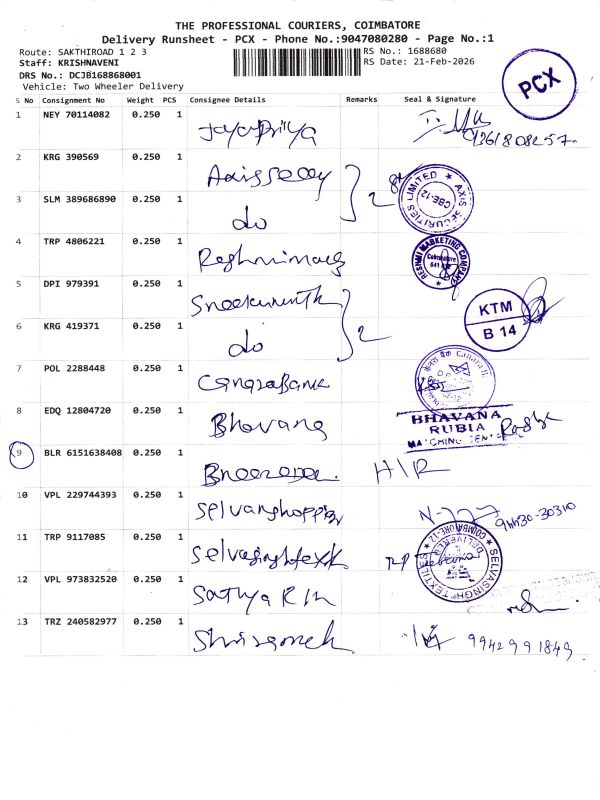 THE PROFESSIONAL COURIERS, COIMBATORE
Delivery Runsheet - PCX - Phone No.:9047080280 - Page No.:1
Route: SAKTHIROAD 1 2 3
RS No.: 1688680
Staff: KRISHNAVENI
RS Date: 21-Feb-2026
DRS No.: DCJB168868001
Vehicle: Two Wheeler Delivery
PCX
S No Consignment No Weight PCS Consignee Details Remarks Seal & Signature
1 NEY 70114082 0.250 1 Jayapriya
2 KRG 390569 0.250 1
3 SLM 389686890 0.250 1 do 2 AXIS SECURITIES LIMITED CBE-12
4 TRP 4806221 0.250 1 RESHMI MARKETING COMPANY Coimbatore
5 DPI 979391 0.250 1
6 KRG 419371 0.250 1 do 2 KTM B 14
7 POL 2288448 0.250 1 Canara Bank
8 EDQ 12804720 0.250 1 Bhavana BHAVANA RUBIA
9 BLR 6151638408 0.250 1 H/R
10 VPL 229744393 0.250 1 94430-30310
11 TRP 9117085 0.250 1 SELVASINGH TEXTILES COIMBATORE-12
12 VPL 973832520 0.250 1 Sathya
13 TRZ 240582977 0.250 1 9942991849